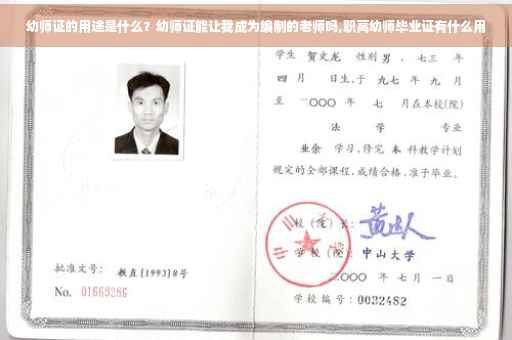 幼师证的用途是什么？幼师证能让我成为编制的老师吗,职高幼师毕业证有什么用
学生 贺文龙 性别 男 、七三 年
四 月 日生,于 九七 年 九 月
至 二〇〇〇 年 七 月在本校(院)
法 学 专业
业余 学习,修完 本 科教学计划
规定的全部课程,成绩合格,准予毕业。
校(院)长:
学校(院): 中山大学
二〇〇〇 年 七 月 一 日
批准文号: 教直[1993]8号
No. 01669286
学校编号: 0032482